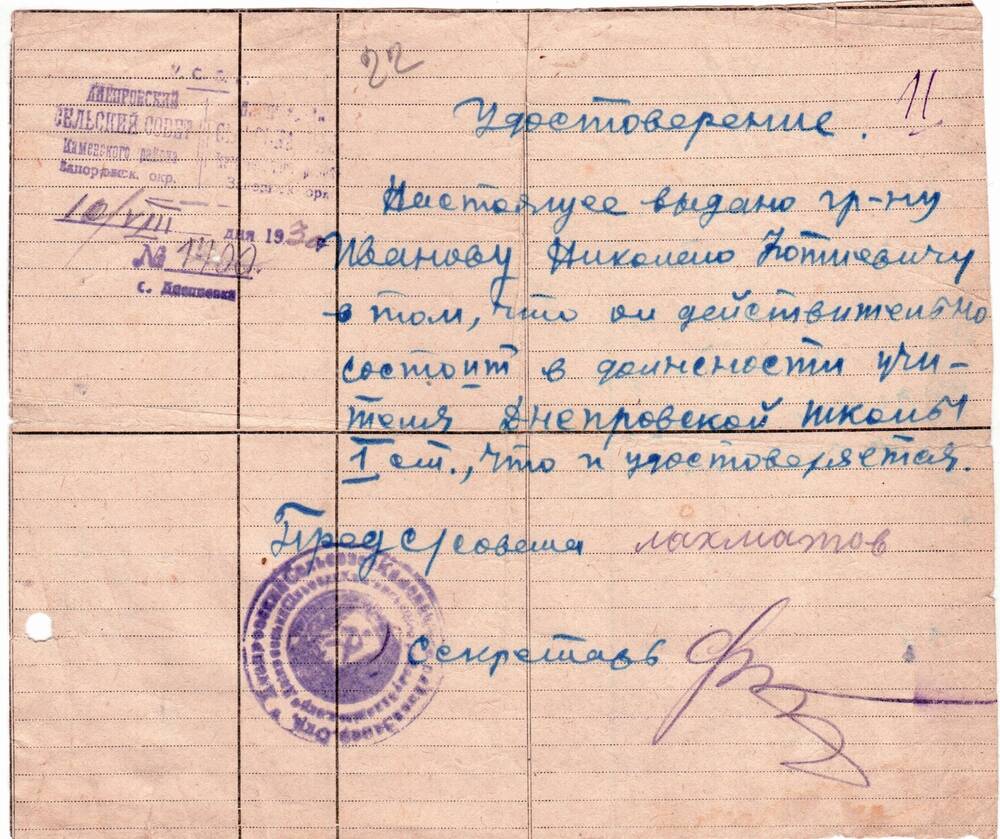 22
11
У.С.
ДНЕПРОВСКИЙ
СЕЛЬСКИЙ СОВЕТ
Каменского района
Запорожск. окр.
10/VIII дня 1930
№ 1400
с. Днепровка
Удостоверение.
Настоящее выдано гр-ну
Иванову Николаю Фотиевичу
в том, что он действительно
состоит в должности учи-
теля Днепровской школы
I ст., что и удостоверяется.
Пред с/совета Лахматов
Секретарь